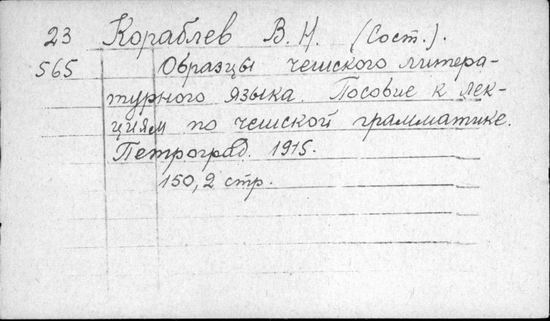 23 Кораблев В. Н. (Сост.).
565 Образцы чешского литера-
турного языка. Пособие к лек-
циям по чешской грамматике.
Петроград. 1915.
150, 2 стр.